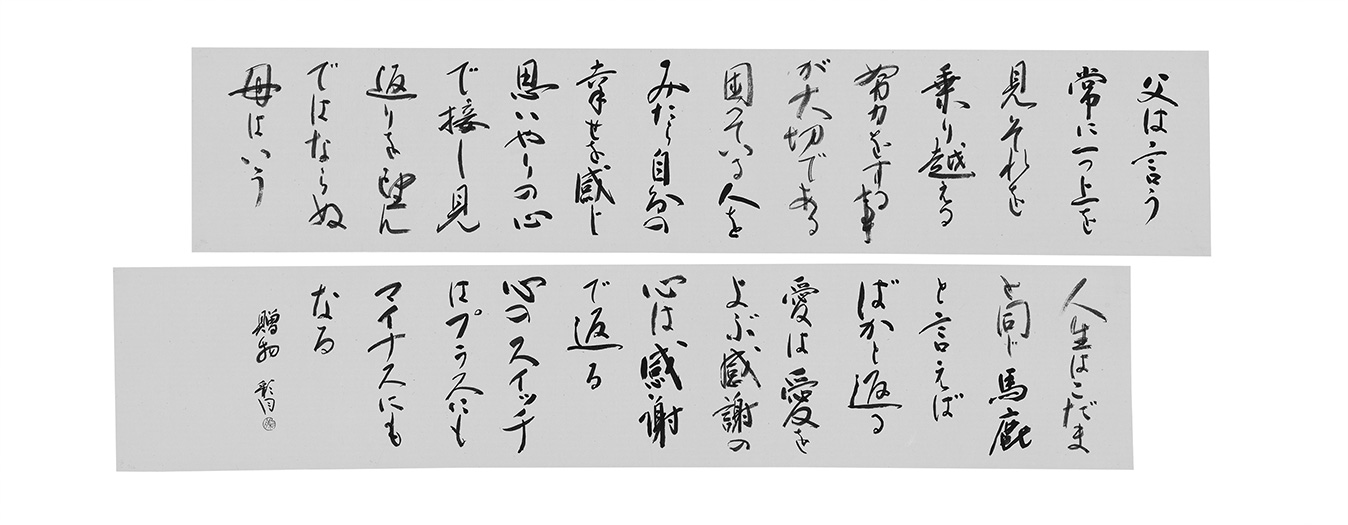 父は言う
常に一つ上を
見それを
乗り越える
努力をする事
が大切である
困っている人を
みたら自分の
幸せを感じ
思いやりの心
で接し見
返りを望ん
ではならぬ
母はいう
人生はこだま
と同じ馬鹿
と言えば
ばかと返る
愛は愛を
よぶ感謝の
心は感謝
で返る
心のスイッチ
はプラスにも
マイナスにも
なる
贈物